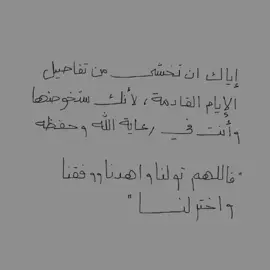 إياك ان تخشى من تفاصيل
الإيام القادمة ، لأنك ستخوضها
وأنت في رعاية الله وحفظه
"فاللهم تولنا واهدنا ووفقنا
واختر لنا"